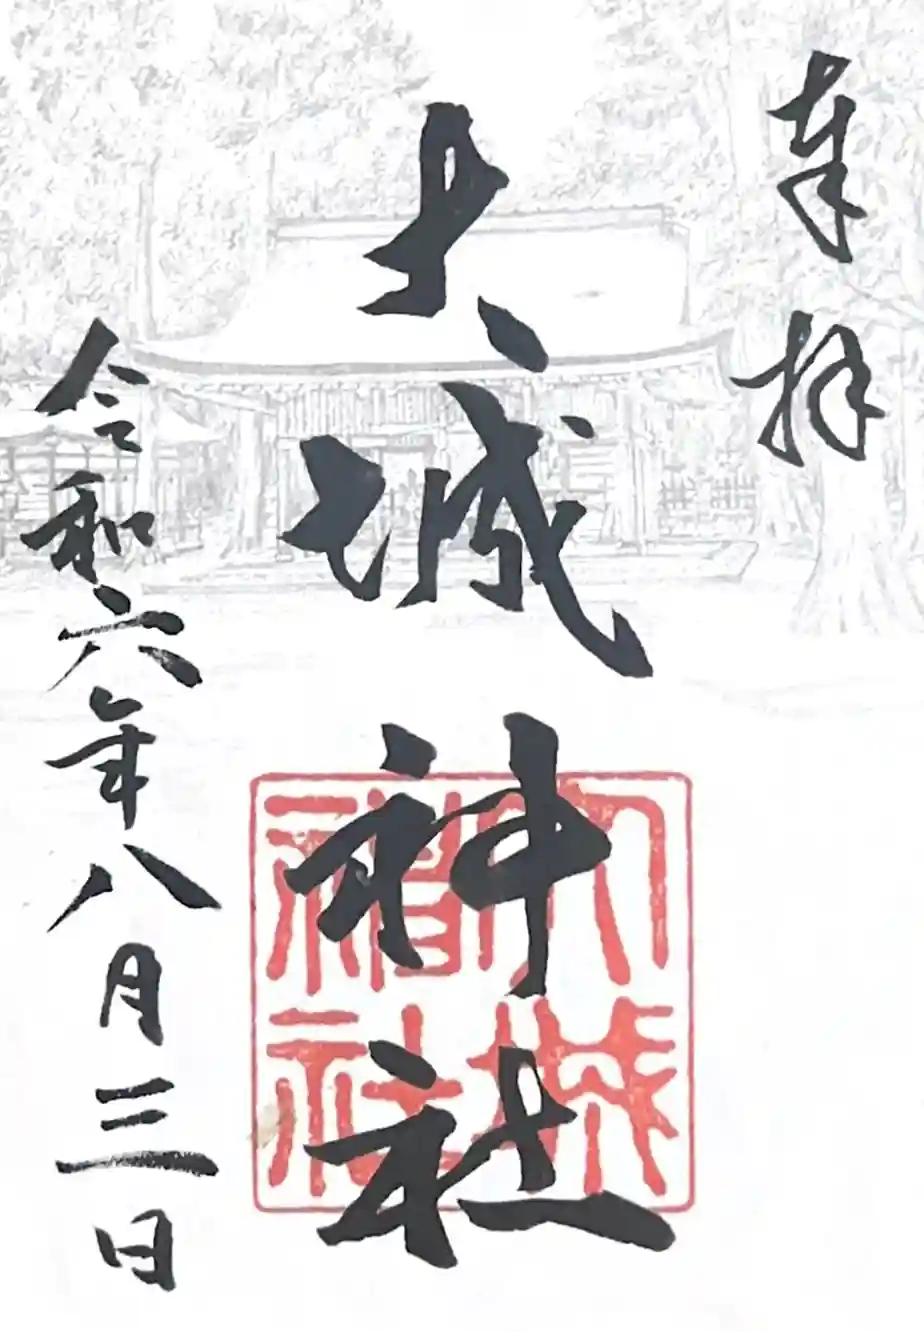 奉拝
大城神社
令和六年八月三日
大城
神社